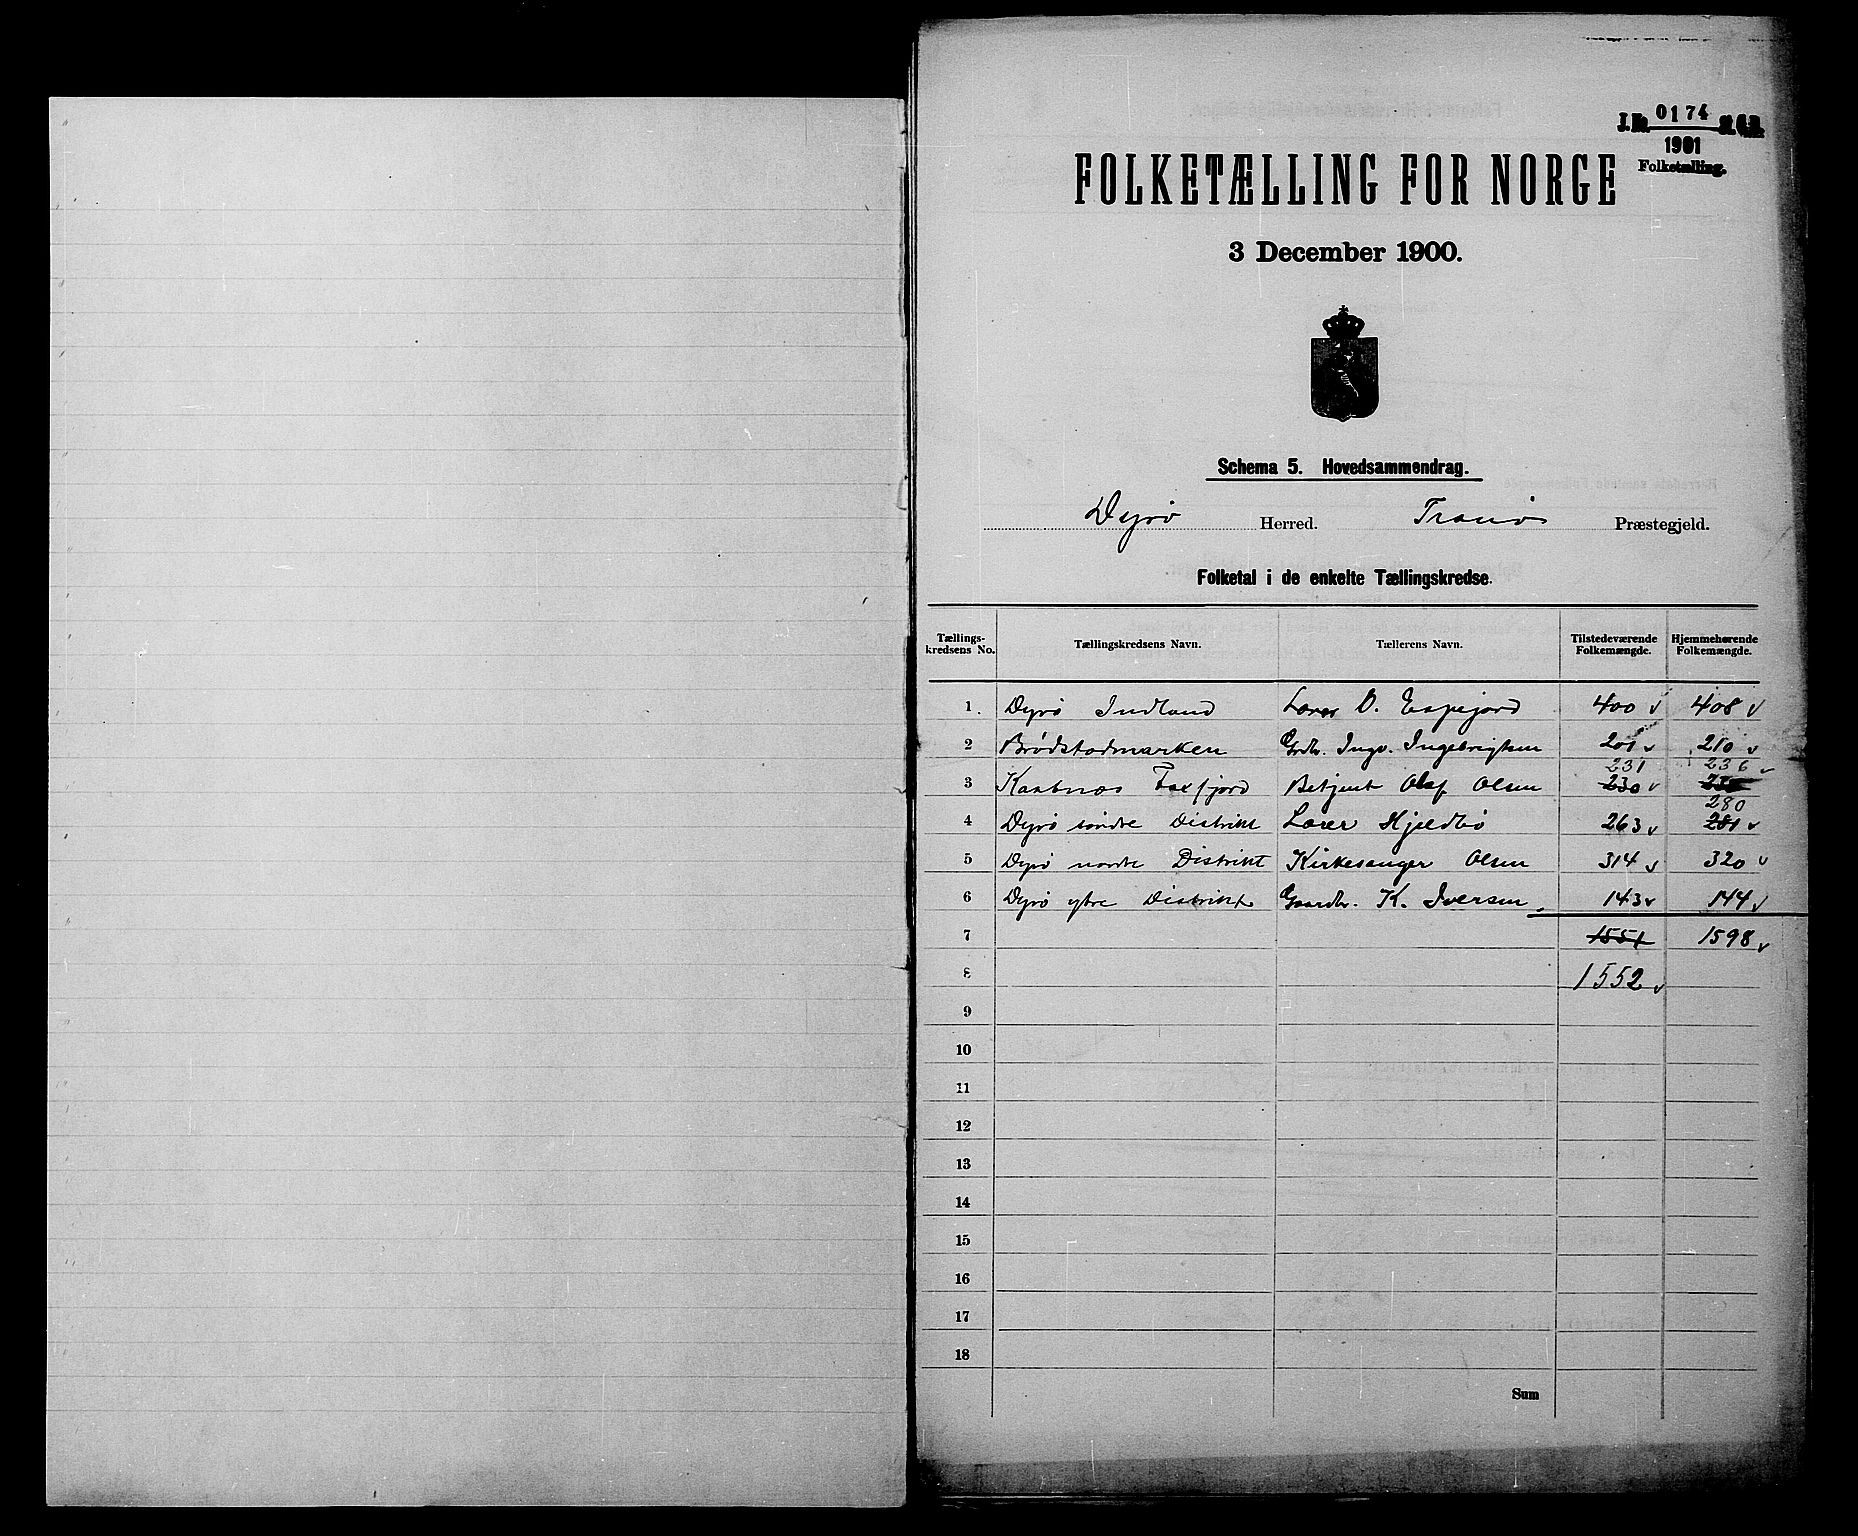 J. No. 0174 St. C. B.
1901
Folketælling.
FOLKETÆLLING FOR NORGE
3 December 1900.
Schema 5. Hovedsammendrag.
Dyrö Herred. Tranö Præstegjeld.
Folketal i de enkelte Tællingskredse.
Tællingskredsens No. Tællingskredsens Navn. Tællerens Navn. Tilstedeværende Folkemængde. Hjemmehørende Folkemængde.
1. Dyrö Indland Lærer O. Espejord 400 408
2 Brödstadmarken Grdbr. Ingv. Ingebrigtsen 201 210
231 236
3 Kastnæs Faxfjord Betjent Olaf Olsen 230
280
4 Dyrö söndre Distrikt Lærer Hjeldbö 263 281
5 Dyrö nordre Distrikt Kirkesanger Olsen 314 320
6 Dyrö ytre Distrikt Gaardbr. K. Iversen 143 144
7 1551 1598
8 1552
9
10
11
12
13
14
15
16
17
18
Sum